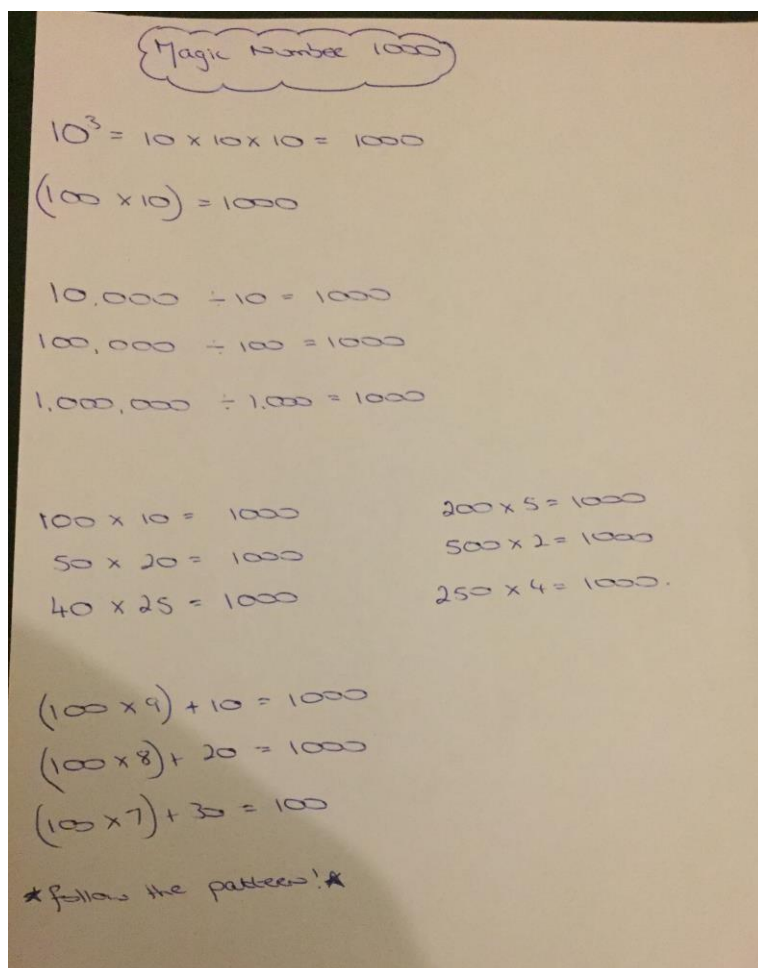 Magic Number 1000
10³ = 10 x 10 x 10 = 1000
(100 x 10) = 1000
10,000 ÷ 10 = 1000
100,000 ÷ 100 = 1000
1,000,000 ÷ 1,000 = 1000
100 x 10 = 1000
50 x 20 = 1000
40 x 25 = 1000
200 x 5 = 1000
500 x 2 = 1000
250 x 4 = 1000.
(100 x 9) + 10 = 1000
(100 x 8) + 20 = 1000
(100 x 7) + 30 = 100
*follow the pattern!*